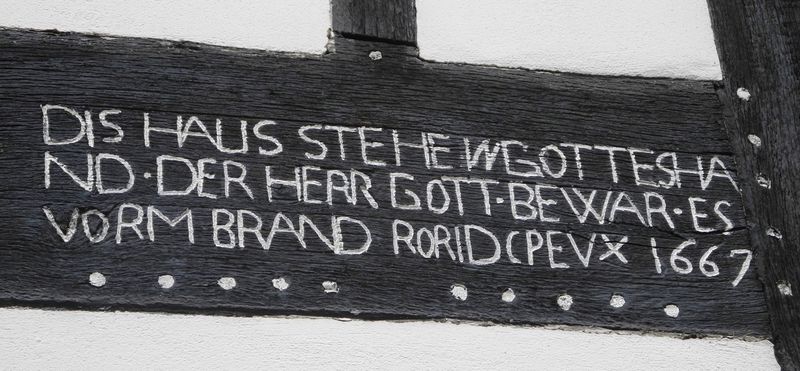 DIS HAUS STEHE IN GOTTESHA
ND·DER HERR GOTT·BEWAR·ES
VORM BRAND RORID(PEVX 1667